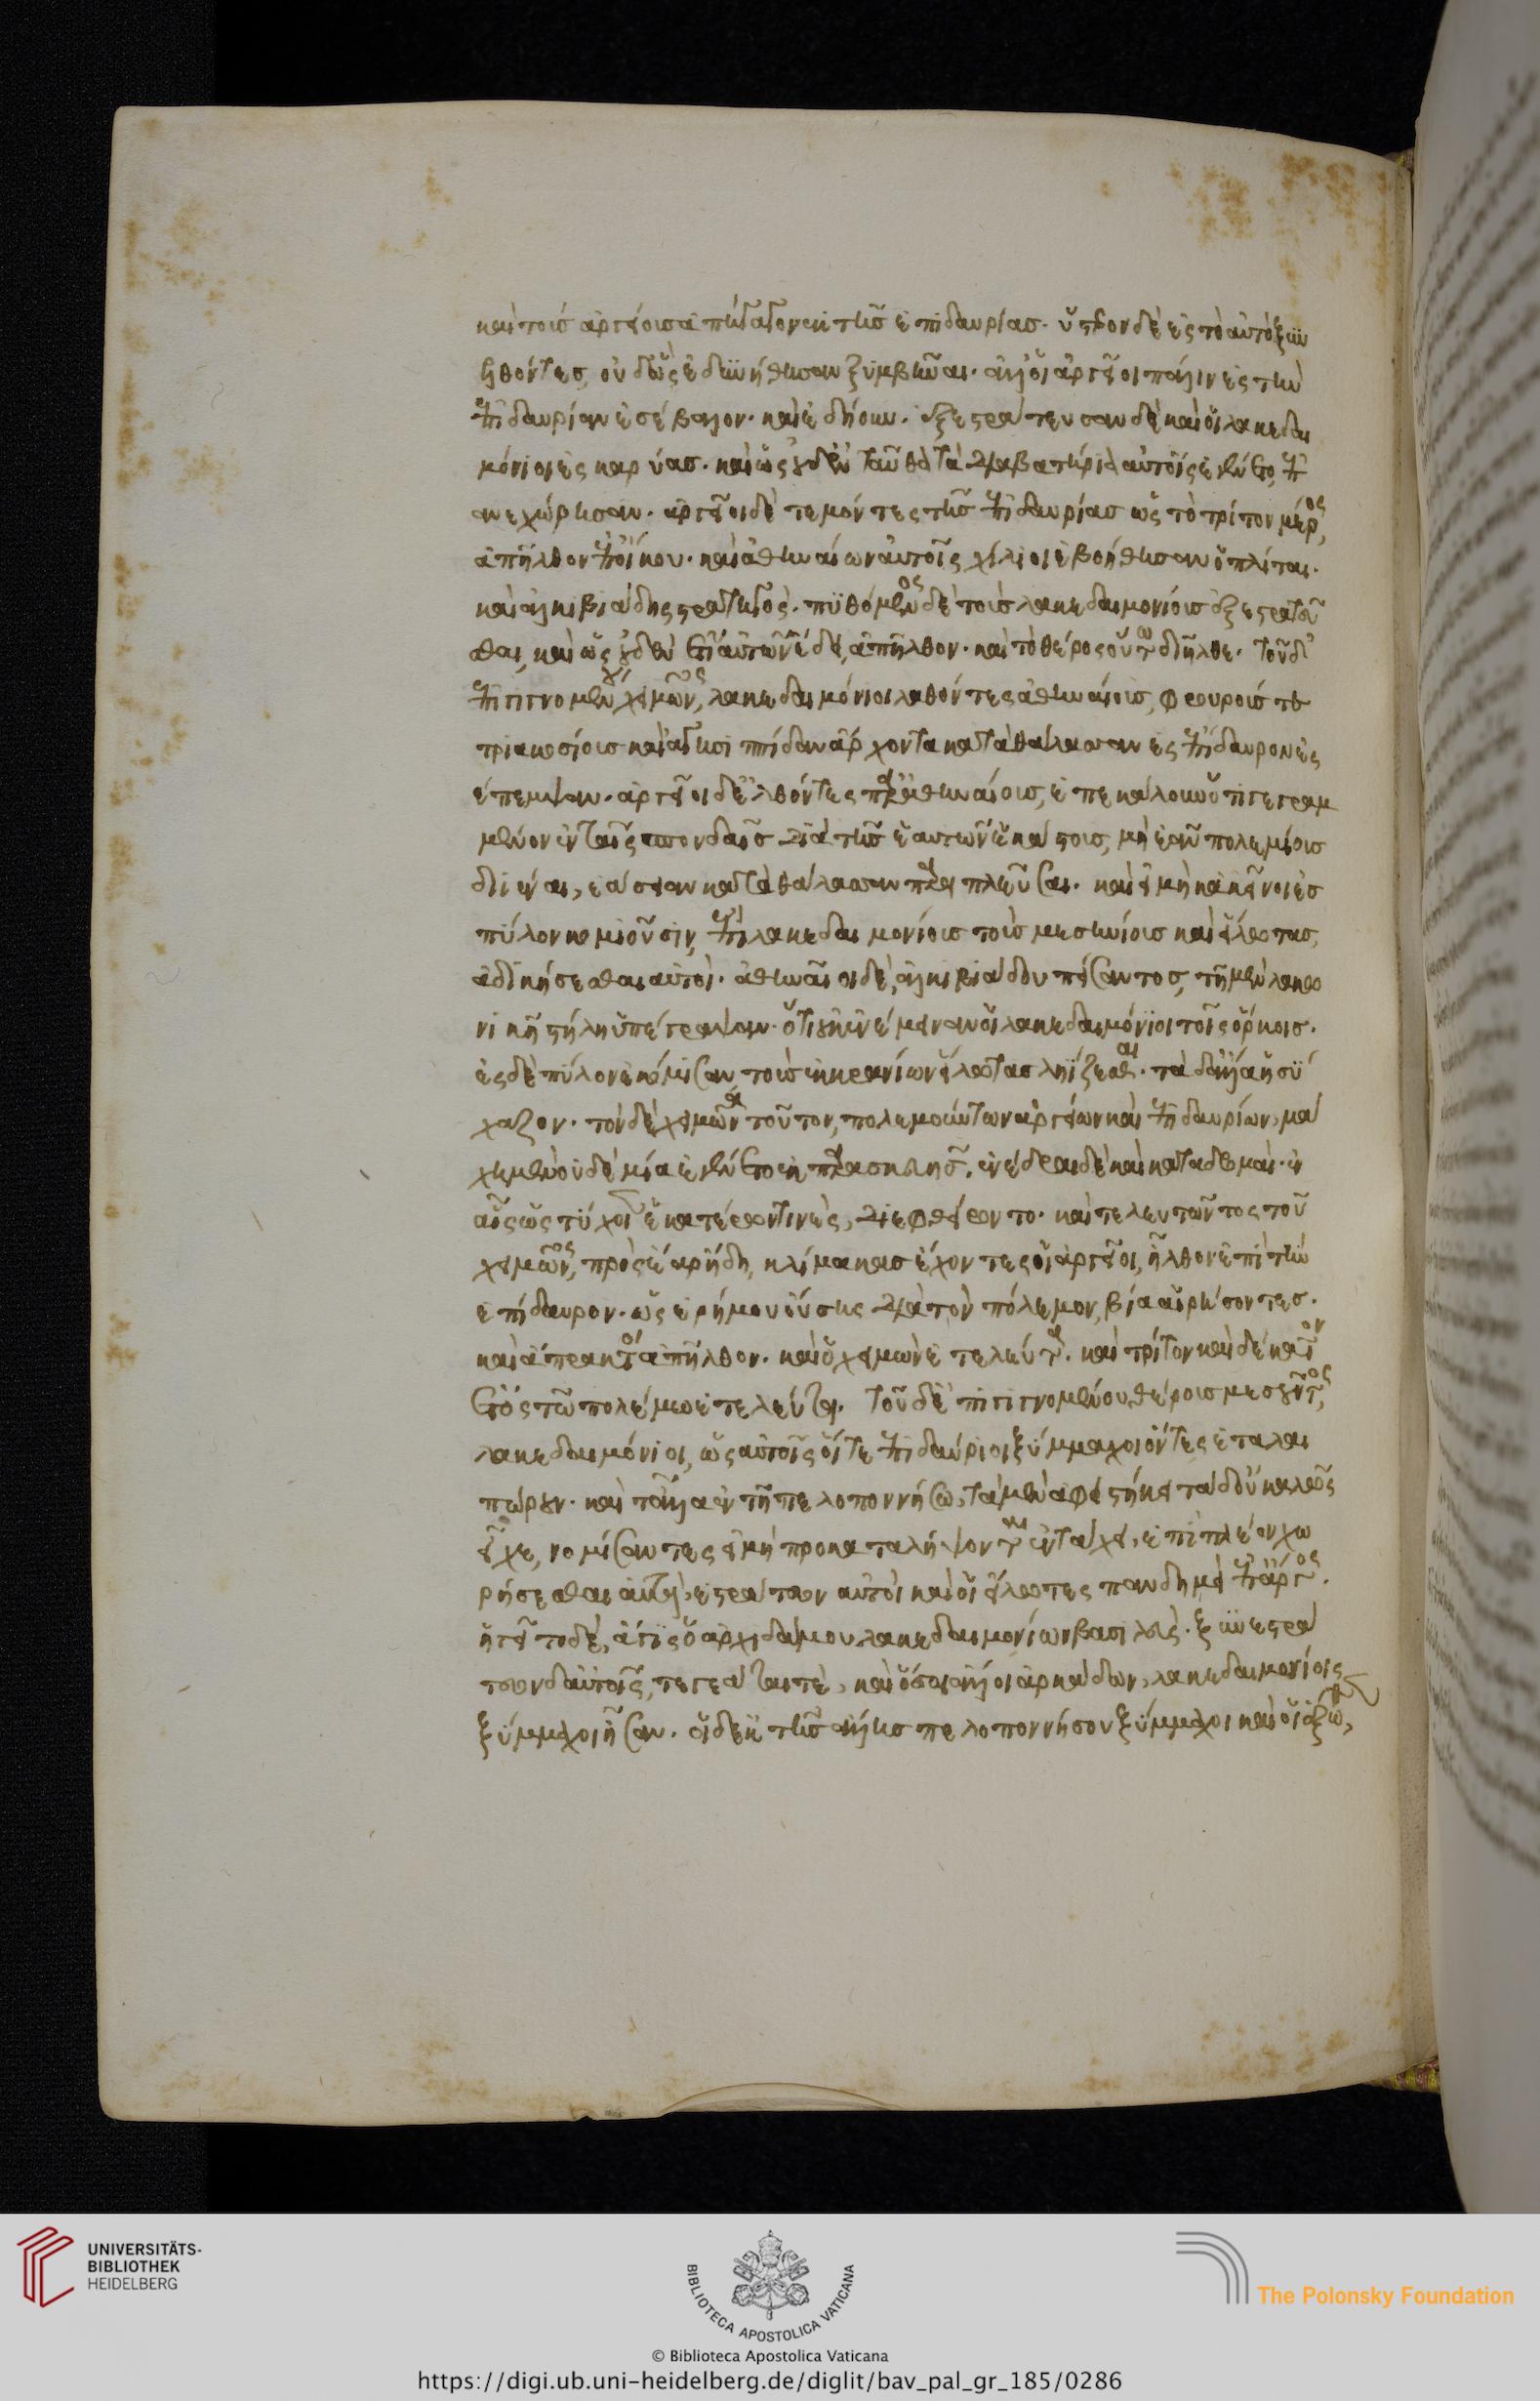 καὶ τοὺς ἀργείους ἀπήγαγον ἐκ τῆς ἐπιδαυρίας. ὕστερον δὲ ἐς τὸ αὐτὸ ξυν
ελθόντες, οὐδ' ὣς ἐδυνήθησαν ξυμβῆναι. ἀλλ' οἱ ἀργεῖοι πάλιν ἐς τὴν
ἐπιδαυρίαν ἐσέβαλον. καὶ ἐδῄουν. ἐξεστράτευσαν δὲ καὶ οἱ λακεδαι
μόνιοι ἐς καρύας. καὶ ὡς οὐδ' ἐνταῦθα τὰ διαβατήρια αὐτοῖς ἐγένετο, ἐπ
ανεχώρησαν. ἀργεῖοι δὲ τεμόντες τῆς ἐπιδαυρίας ὡς τὸ τρίτον μέρος,
ἀπῆλθον ἐπ' οἴκου. καὶ ἀθηναίων αὐτοῖς χίλιοι ἐβοήθησαν ὁπλῖται.
καὶ ἀλκιβιάδης στρατηγός. πυθόμενος δὲ τοὺς λακεδαιμονίους ἐξεστρατεῦ
σθαι, καὶ ὡς οὐδὲν ἔτι αὐτῶν ἔδει, ἀπῆλθον. καὶ τὸ θέρος οὕτω διῆλθε. τοῦ δ'
ἐπιγιγνομένου χειμῶνος, λακεδαιμόνιοι λαθόντες ἀθηναίους, φρουρούς τε
τριακοσίους καὶ ἀγησιππίδαν ἄρχοντα κατὰ θάλασσαν ἐς ἐπίδαυρον ἐς
έπεμψαν. ἀργεῖοι δ' ἐλθόντες παρ' ἀθηναίους, ἐπεκάλουν ὅτι γεγραμ
μένον ἐν ταῖς σπονδαῖς διὰ τῆς ἑαυτῶν ἑκάστους, μὴ ἐᾶν πολεμίους
διιέναι, ἐάσειαν κατὰ θάλασσαν παραπλεῦσαι. καὶ εἰ μὴ κἀκεῖνοι ἐς
πύλον κομιοῦσιν, ἐπὶ λακεδαιμονίους τοὺς μεσηνίους καὶ εἵλωτας,
ἀδικήσεσθαι αὐτοί. ἀθηναῖοι δὲ, ἀλκιβιάδου πείσαντος, τῇ μὲν λακω
νικῇ στήλῃ ὑπέγραψαν. ὅτι οὐκ ἐνέμειναν οἱ λακεδαιμόνιοι τοῖς ὅρκοις.
ἐς δὲ πύλον ἐκόμισαν τοὺς ἐκ κρανίων εἵλωτας ληΐζεσθαι. τὰ δ' ἄλλα ἡσύ
χαζον. τὸν δὲ χειμῶνα τοῦτον, πολεμούντων ἀργείων καὶ ἐπιδαυρίων, μά
χη μὲν οὐδεμία ἐγένετο ἐκ παρασκευῆς. ἐνέδραι δὲ καὶ καταδρομαί. ἐν
αἷς ὡς τύχοιεν ἑκατέρων τινὲς, διεφθείροντο. καὶ τελευτῶντος τοῦ
χειμῶνος, πρὸς ἔαρ ἤδη, κλίμακας ἔχοντες οἱ ἀργεῖοι, ἦλθον ἐπὶ τὴν
ἐπίδαυρον. ὡς ἐρήμου οὔσης διὰ τὸν πόλεμον, βίᾳ αἱρήσοντες.
καὶ ἄπρακτοι ἀπῆλθον. καὶ ὁ χειμὼν ἐτελεύτα. καὶ τρίτον καὶ δέκατον
ἔτος τῷ πολέμῳ ἐτελεύτα. τοῦ δ' ἐπιγιγνομένου θέρους μεσοῦντος,
λακεδαιμόνιοι, ὡς αὐτοῖς οἵ τε ἐπιδαύριοι ξύμμαχοι ὄντες ἐταλαι
πώρουν. καὶ τἄλλα ἐν τῇ πελοποννήσῳ, τὰ μὲν ἀφειστήκει τὰ δ' οὐ καλῶς
εἶχε, νομίσαντες εἰ μὴ προκαταλήψονται ἐν τάχει, ἐπὶ πλέον χω
ρήσεσθαι αὐτὰ, ἐστράτευον αὐτοὶ καὶ οἱ εἵλωτες πανδημεὶ ἐπ' ἄργος.
ἡγεῖτο δὲ, ἆγις ὁ ἀρχιδάμου λακεδαιμονίων βασιλεύς. ξυνεστρά
τευον δ' αὐτοῖς, τεγεᾶταί τε, καὶ ὅσοι ἄλλοι ἀρκάδων, λακεδαιμονίοις
ξύμμαχοι ἦσαν. οἱ δ' ἐκ τῆς ἄλλης πελοποννήσου ξύμμαχοι καὶ οἱ ἔξωθεν,
UNIVERSITÄTS-
BIBLIOTHEK
HEIDELBERG
BIBLIOTECA APOSTOLICA VATICANA
The Polonsky Foundation
© Biblioteca Apostolica Vaticana
https://digi.ub.uni-heidelberg.de/diglit/bav_pal_gr_185/0286